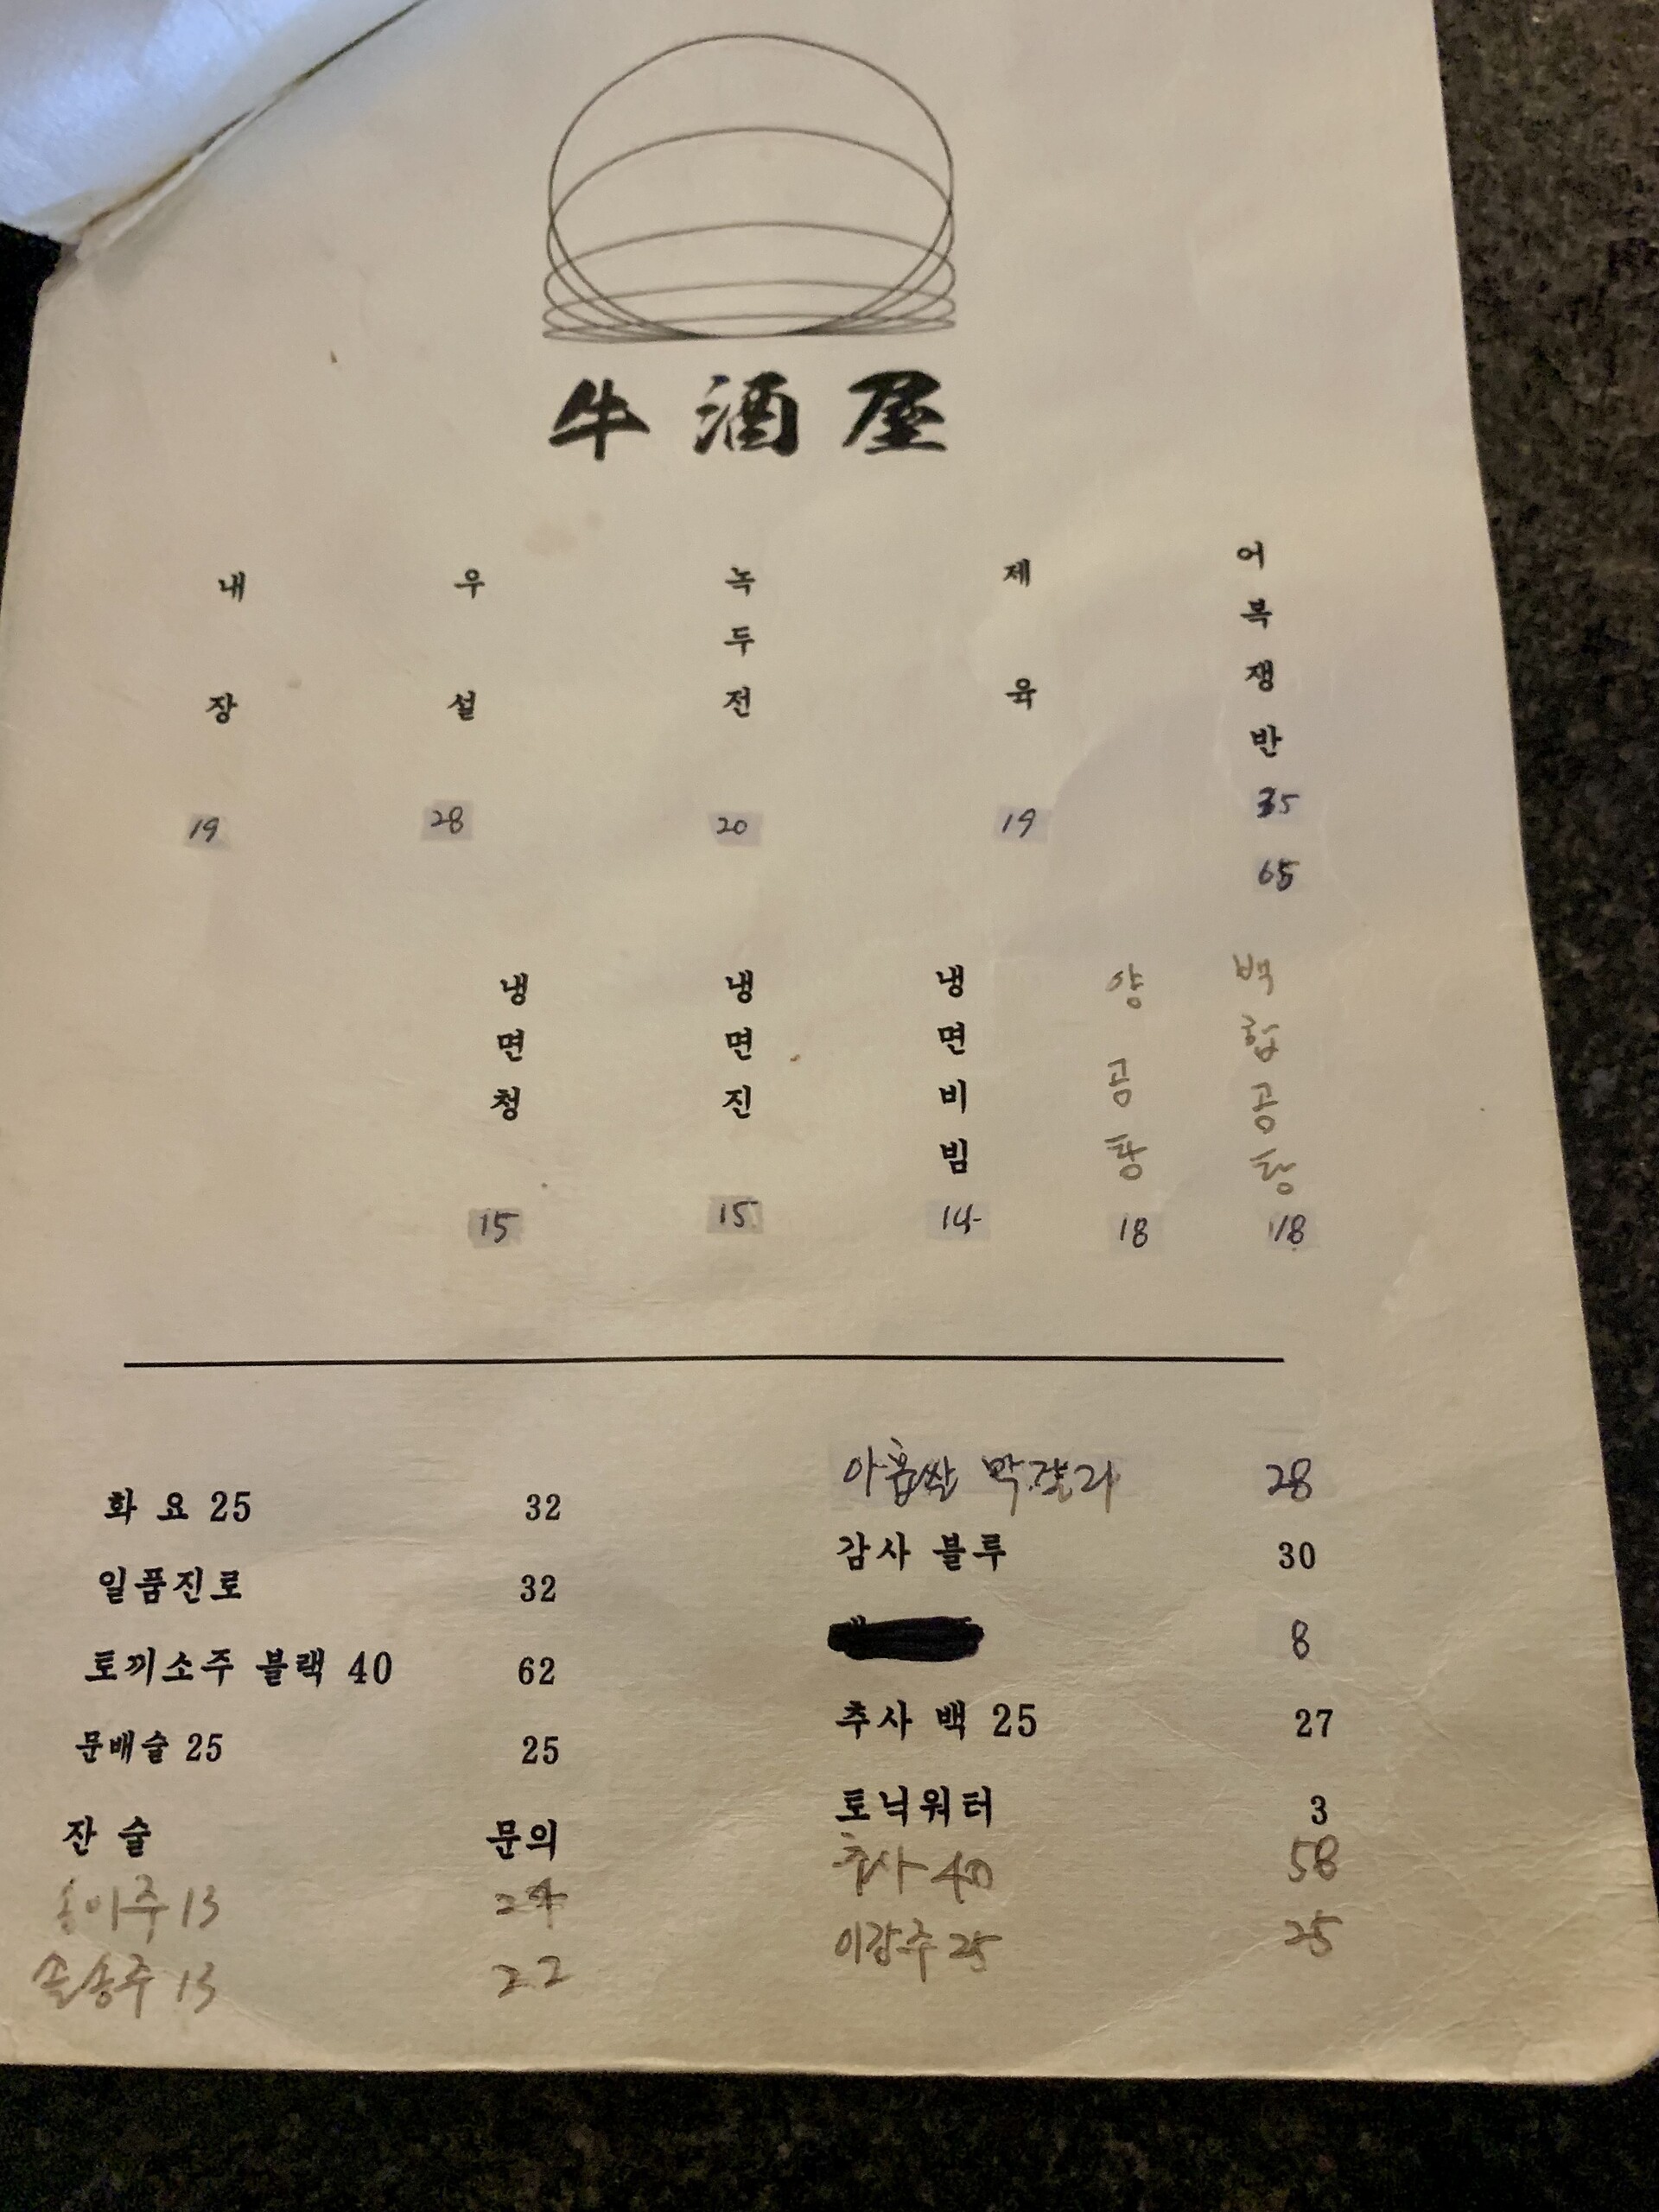 牛酒屋
어복쟁반
35
65
제육
19
녹두전
20
우설
28
내장
19
백합곰탕
18
양곰탕
18
냉면비빔
14
냉면진
15
냉면청
15
화요 25 32
일품진로 32
토끼소주 블랙 40 62
문배술 25 25
잔술 문의
송이주 13 24
솔송주 13 22
아홉쌀 막걸리 28
감사 블루 30
8
추사 백 25 27
토닉워터 3
추사 40 58
이강주 25 25